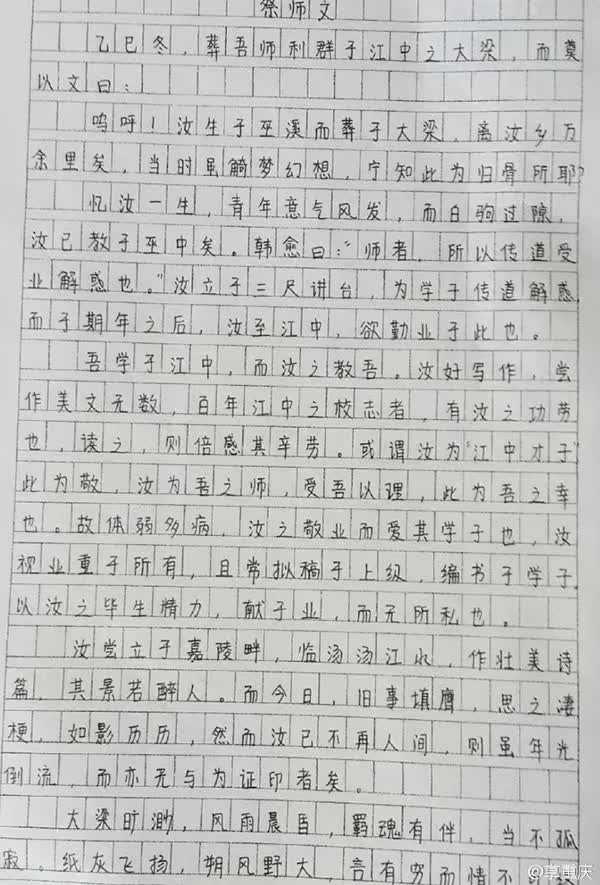 祭师文
乙巳冬，葬吾师利群于江中之大梁，而奠
以文曰：
呜呼！汝生于巫溪而葬于大梁，离汝乡万
余里矣，当时虽觭梦幻想，宁知此为归骨所耶？
忆汝一生，青年意气风发，而白驹过隙，
汝已教于巫中矣。韩愈曰：“师者，所以传道受
业解惑也。”汝立于三尺讲台，为学子传道解惑，
而于期年之后，汝至江中，欲勤业于此也。
吾学于江中，而汝之教吾。汝好写作，尝
作美文无数，百年江中之校志者，有汝之功劳
也，读之，则倍感其辛劳。或谓汝为“江中才子”
此为敬，汝为吾之师，受吾以理，此为吾之幸
也。故体弱多病，汝之敬业而爱其学子也，汝
视业重于所有，且常拟稿于上级，编书于学子，
以汝之毕生精力，献于业，而无所私也。
汝尝立于嘉陵畔，临汤汤江水，作壮美诗
篇，其景若醉人。而今日，旧事填膺，思之凄
梗，如影历历，然而汝已不再人间，则虽年光
倒流，而亦无与为证印者矣。
大梁旷渺，风雨晨昏，羁魂有伴，当不孤
寂。纸灰飞扬，朔风野大，言有穷而情不
@掌重庆